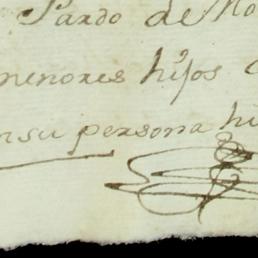 Pardo de Mo
menores hijos
en su persona hi